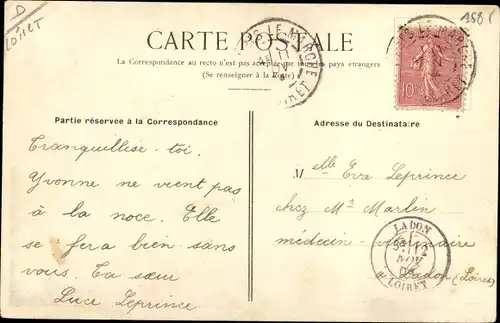 D
Loiret
1581
CARTE POSTALE
La Correspondance au recto n'est pas acceptée par tous les pays étrangers
(Se renseigner à la Poste)
10
LOIRET
Partie réservée à la Correspondance
Adresse du Destinataire
Tranquillise-toi.
Yvonne ne vient pas
à la noce. Elle
se fera bien sans
vous. Ta sœur
Luce Leprince
Melle Eva Leprince
chez Mr Marlin
médecin-vétérinaire
Ladon (Loiret)
LADON
NOV
LOIRET